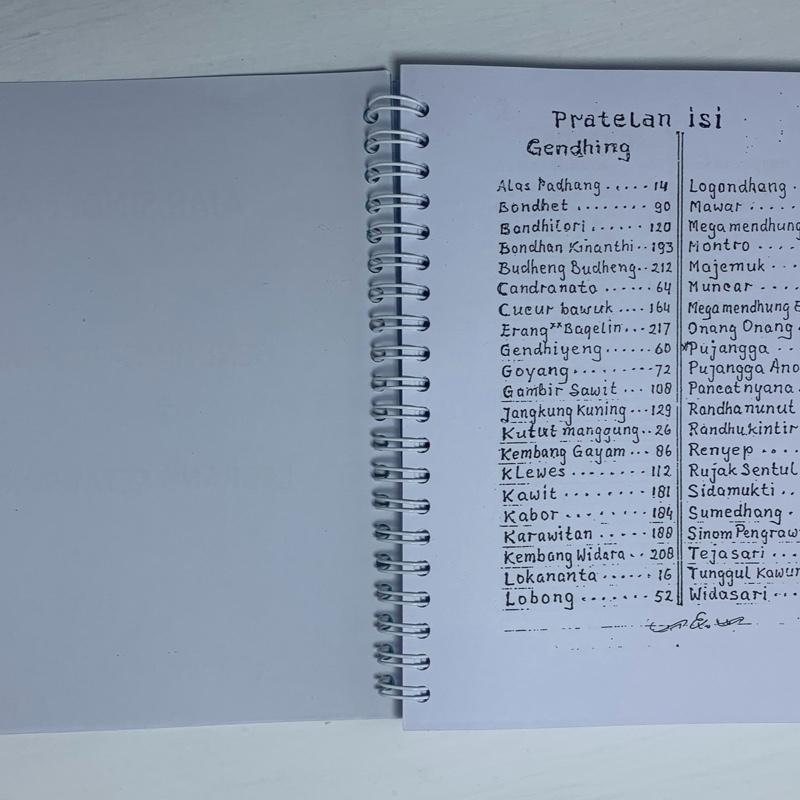 Pratelan isi
Gendhing
Alas Padhang ..... 14
Bondhet ........ 90
Bandhilori ...... 120
Bondhan Kinanthi .. 193
Budheng Budheng .. 212
Candranata ...... 64
Cucur bawuk .... 164
Erang** Bagelin ... 217
Gendhiyeng ...... 60
Goyang ......... 72
Gambir Sawit ... 108
Jangkung Kuning ... 129
Kutut manggung .. 26
Kembang Gayam ... 86
Klewes ........ 112
Kawit ........ 181
Kabor ........ 184
Karawitan ..... 188
Kembang Widara .. 208
Lokananta ...... 16
Lobong ....... 52
Logondhang .
Mawar .....
Mega mendhung
Montro ....
Majemuk ...
Muncar ....
Megamendhung
Onang Onang .
*Pujangga ..
Pujangga Ano
Pancatnyana .
Randhanunut
Randhukintir
Renyep ....
Rujak Sentul
Sidamukti ..
Sumedhang .
Sinom Pengraw
Tejasari ...
Tunggul Kawu
Widasari ...